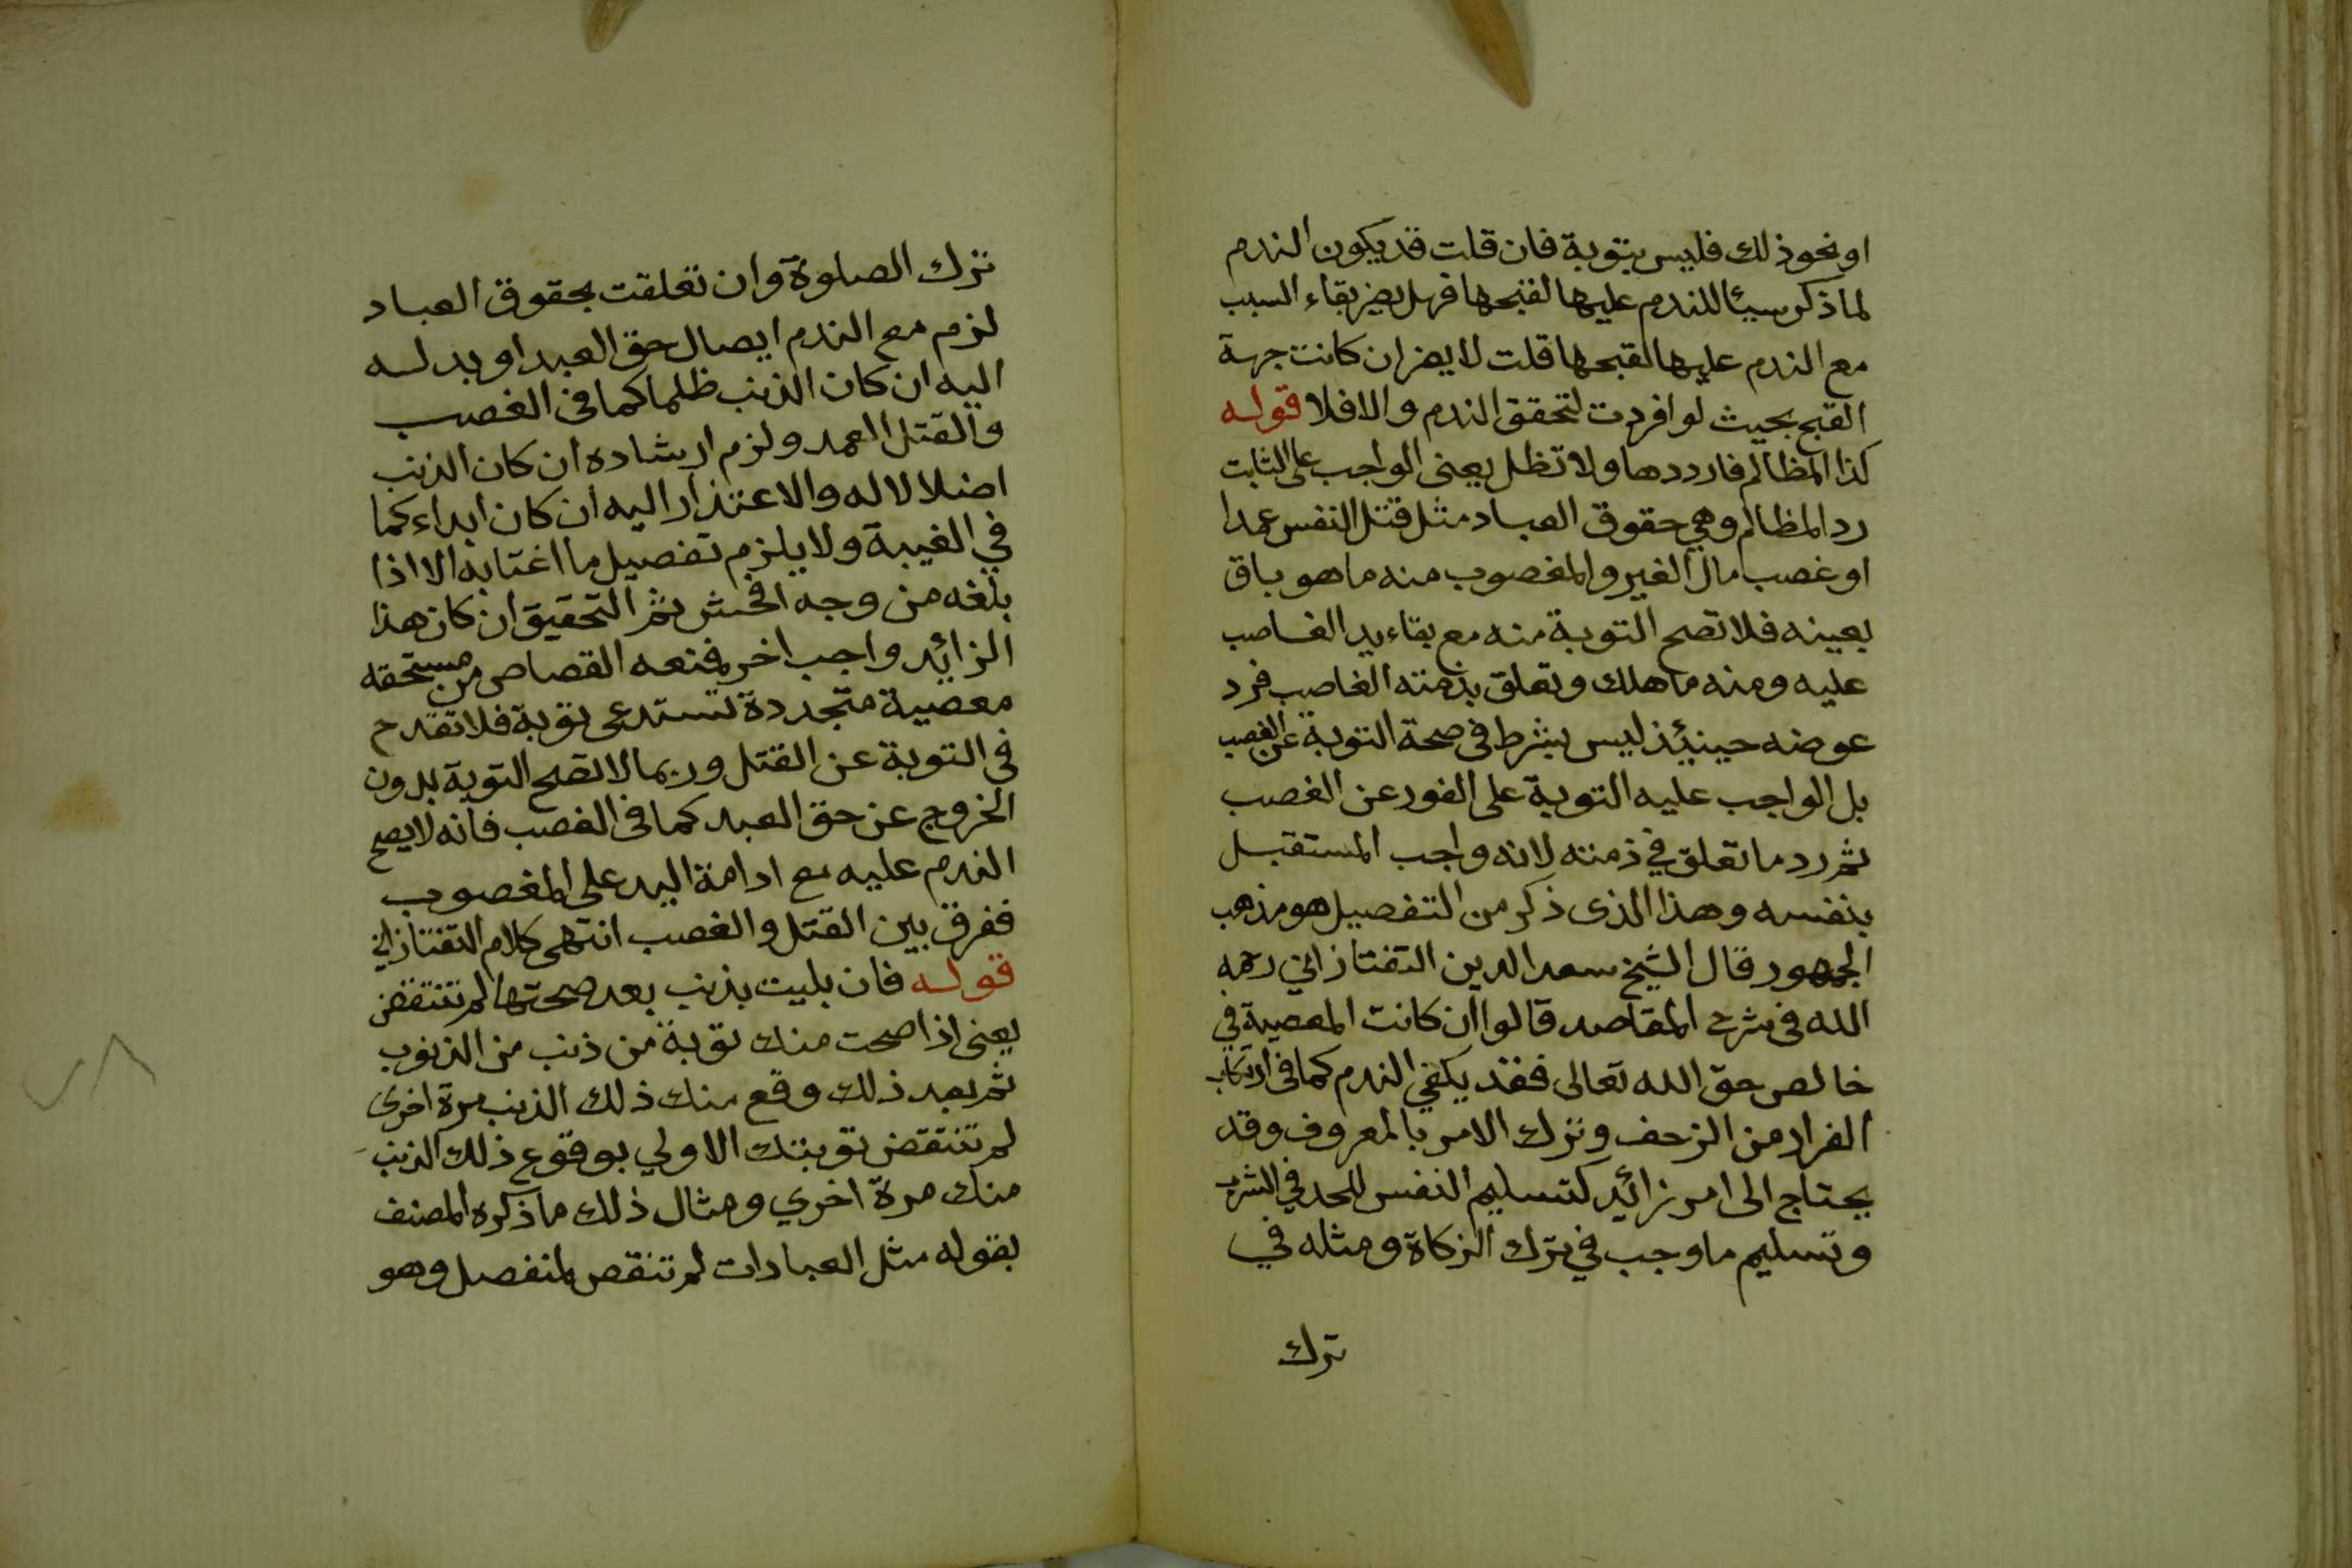 او نحو ذلك فليس بتوبة فان قلت قد يكون الندم
لما ذكر سببا للندم عليها لقبحها فهل يضر بقاء السبب
مع الندم عليها لقبحها قلت لا يضر ان كانت جهة
القبح بحيث لو افردت لتحقق الندم والا فلا قوله
كذا المظالم فارددها ولا تظل يعنى الواجب على التايب
رد المظالم وهي حقوق العباد مثل قتل النفس عمدا
او غصب مال الغير والمغصوب منه ما هو باق
بعينه فلا تصح التوبة منه مع بقاء يد الغاصب
عليه ومنه ما هلك وتعلق بذمته الغاصب فرد
عوضه حينئذ ليس بشرط فى صحة التوبة عن الغصب
بل الواجب عليه التوبة على الفور عن الغصب
ثم رد ما تعلق في ذمته لانه واجب المستقبل
بنفسه وهذا الذى ذكر من التفصيل هو مذهب
الجمهور قال الشيخ سعد الدين التفتازاني رحمه
الله فى شرح المقاصد قالوا ان كانت المعصية في
خالص حق الله تعالى فقد يكفي الندم كما فى ارتكاب
الفرار من الزحف وترك الامر بالمعروف وقد
يحتاج الى امر زائد كتسليم النفس للحد في الشرب
وتسليم ما وجب في ترك الزكاة ومثله في
ترك
ترك الصلوة وان تعلقت بحقوق العباد
لزم مع الندم ايصال حق العبد او بدله
اليه ان كان الذنب ظلما كما فى الغصب
والقتل العمد ولزم ارشاده ان كان الذنب
اضلالا له والاعتذار اليه ان كان ايذاء كما
في الغيبة ولا يلزم تفصيل ما اغتابه الا اذا
بلغه من وجه افحش ثم التحقيق ان كان هذا
الزائد واجب اخر فمنعه القصاص من مستحقه
معصية متجددة تستدعى توبة فلا تقدح
في التوبة عن القتل وربما لا تصح التوبة بدون
الخروج عن حق العبد كما فى الغصب فانه لا يصح
الندم عليه مع ادامة اليد على المغصوب
ففرق بين القتل والغصب انتهى كلام التفتازاني
قوله فان بليت بذنب بعد صحتها لم تنتقض
يعنى اذا صحت منك توبة من ذنب من الذنوب
ثم بعد ذلك وقع منك ذلك الذنب مرة اخرى
لم تنتقض توبتك الاولي بوقوع ذلك الذنب
منك مرة اخري ومثال ذلك ما ذكره المصنف
بقوله مثل العبادات لم تنقص لمنفصل وهو